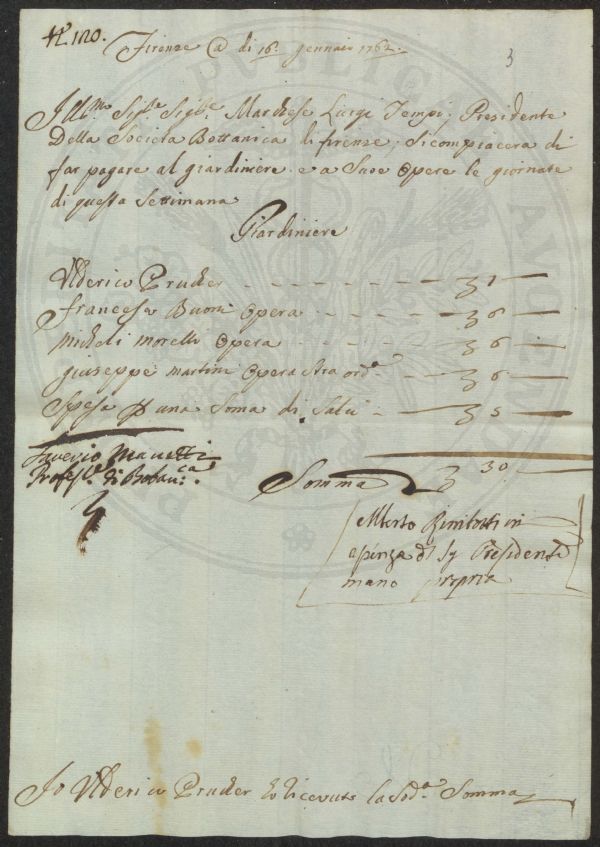 N.° 120.
Firenze @ di 16. gennaio 1762.
3
Ill.mo Sig.re Sig.re Marchese Luigi Tempi; Presidente
Della Societa Bottanica di firenze; si compiacera di
far pagare al giardiniere e a Suoe Opere le giornate
di questa Settimana
Giardiniere
Ulderico Prucker - - - - - - 7 —
francescho Buoni Opera - - - - 6 —
Micheli morelli Opera - - - - 6 —
giuseppe martini Opera stra ord.a - 6 —
Spesa p una Soma di Salci - 5 —
Saverio Manetti
Profess.e di Botan:ca
Somma 30
Alberto Rimbotti in
Presidente
mano propria
Io Ulderico Prucker ho ricevuto la Sod.a Somma